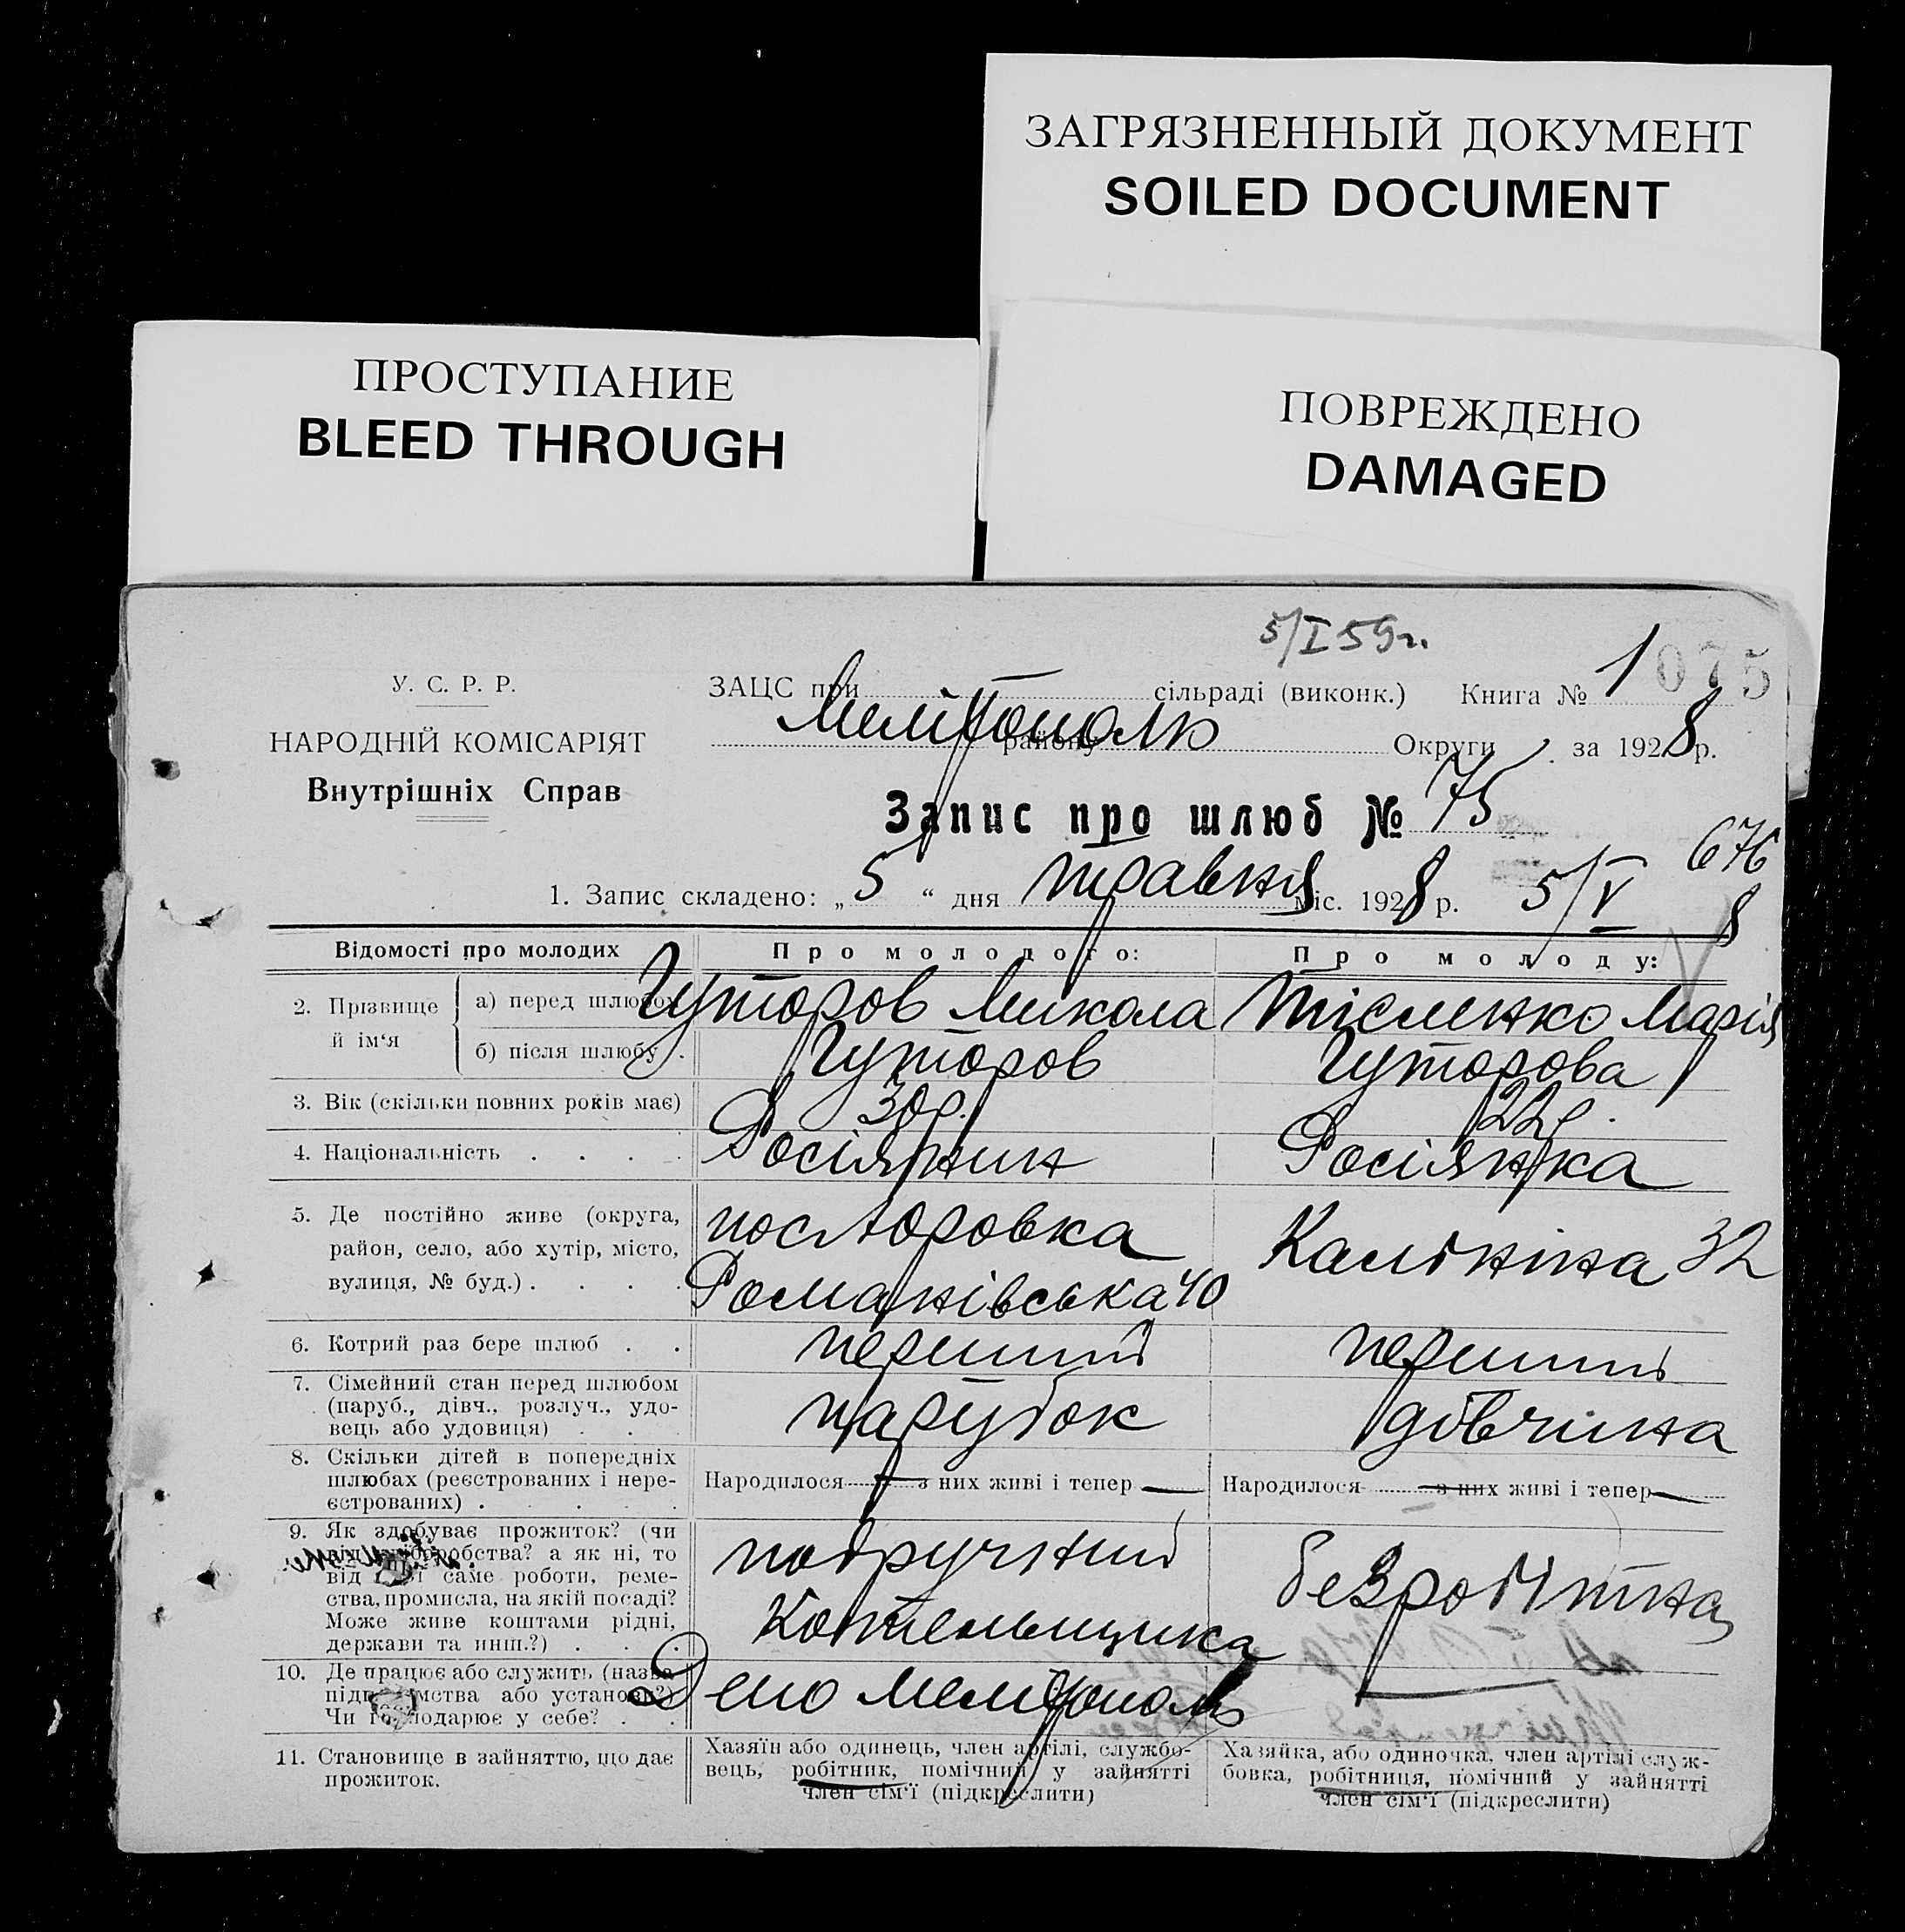 ЗАГРЯЗНЕННЫЙ ДОКУМЕНТ
SOILED DOCUMENT
ПРОСТУПАНИЕ
BLEED THROUGH
ПОВРЕЖДЕНО
DAMAGED
5/I 59г.
У. С. Р. Р.
НАРОДНІЙ КОМІСАРІЯТ
Внутрішніх Справ
ЗАЦС при сільраді (виконк.) Книга № 1 075
Мелітополь району Округи за 1928 р.
Запис про шлюб № 75
676
1. Запис складено: „ 5 “ дня травня міс. 1928 р. 5/V 8
Відомості про молодих Про молодого: Про молоду:
2. Прізвище й ім‘я
а) перед шлюбом Гуторов Микола Тісленко Марія
б) після шлюбу . Гуторов Гуторова
3. Вік (скільки повних років має) 30 р. 22 р.
4. Національність . . . . Росіянин Росіянка
5. Де постійно живе (округа, район, село, або хутір, місто, вулиця, № буд.) . . . .
Романівська 40
Калініна 32
6. Котрий раз бере шлюб . . перший перший
7. Сімейний стан перед шлюбом (паруб., дівч., розлуч., удовець або удовиця) . . .
парубок дівчина
8. Скільки дітей в попередніх шлюбах (реєстрованих і нереєстрованих) . . . . .
Народилося — з них живі і тепер — Народилося — з них живі і тепер —
9. Як здобуває прожиток? (чи від хліборобства? а як ні, то від якої саме роботи, ремества, промисла, на якій посаді? Може живе коштами рідні, держави та инш.?) . . .
подручний
Котельщика
безробітна
10. Де працює або служить (назва підприємства або установи?) Чи господарює у себе? . .
Депо Мелітополь
11. Становище в зайняттю, що дає прожиток.
Хазяїн або одинець, член артілі, службовець, робітник, помічний у зайнятті член сім‘ї (підкреслити)
Хазяйка, або одиночка, член артілі службовка, робітниця, помічний у зайнятті член сім‘ї (підкреслити)